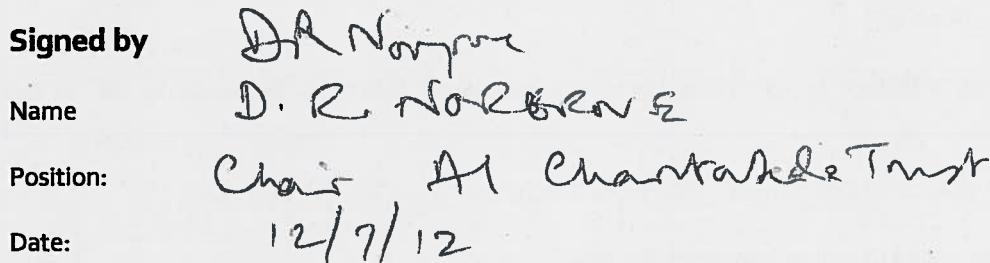 Signed by DR Norgrove
Name D. R. NORGROVE
Position: Chair A1 Charitable Trust
Date: 12/7/12